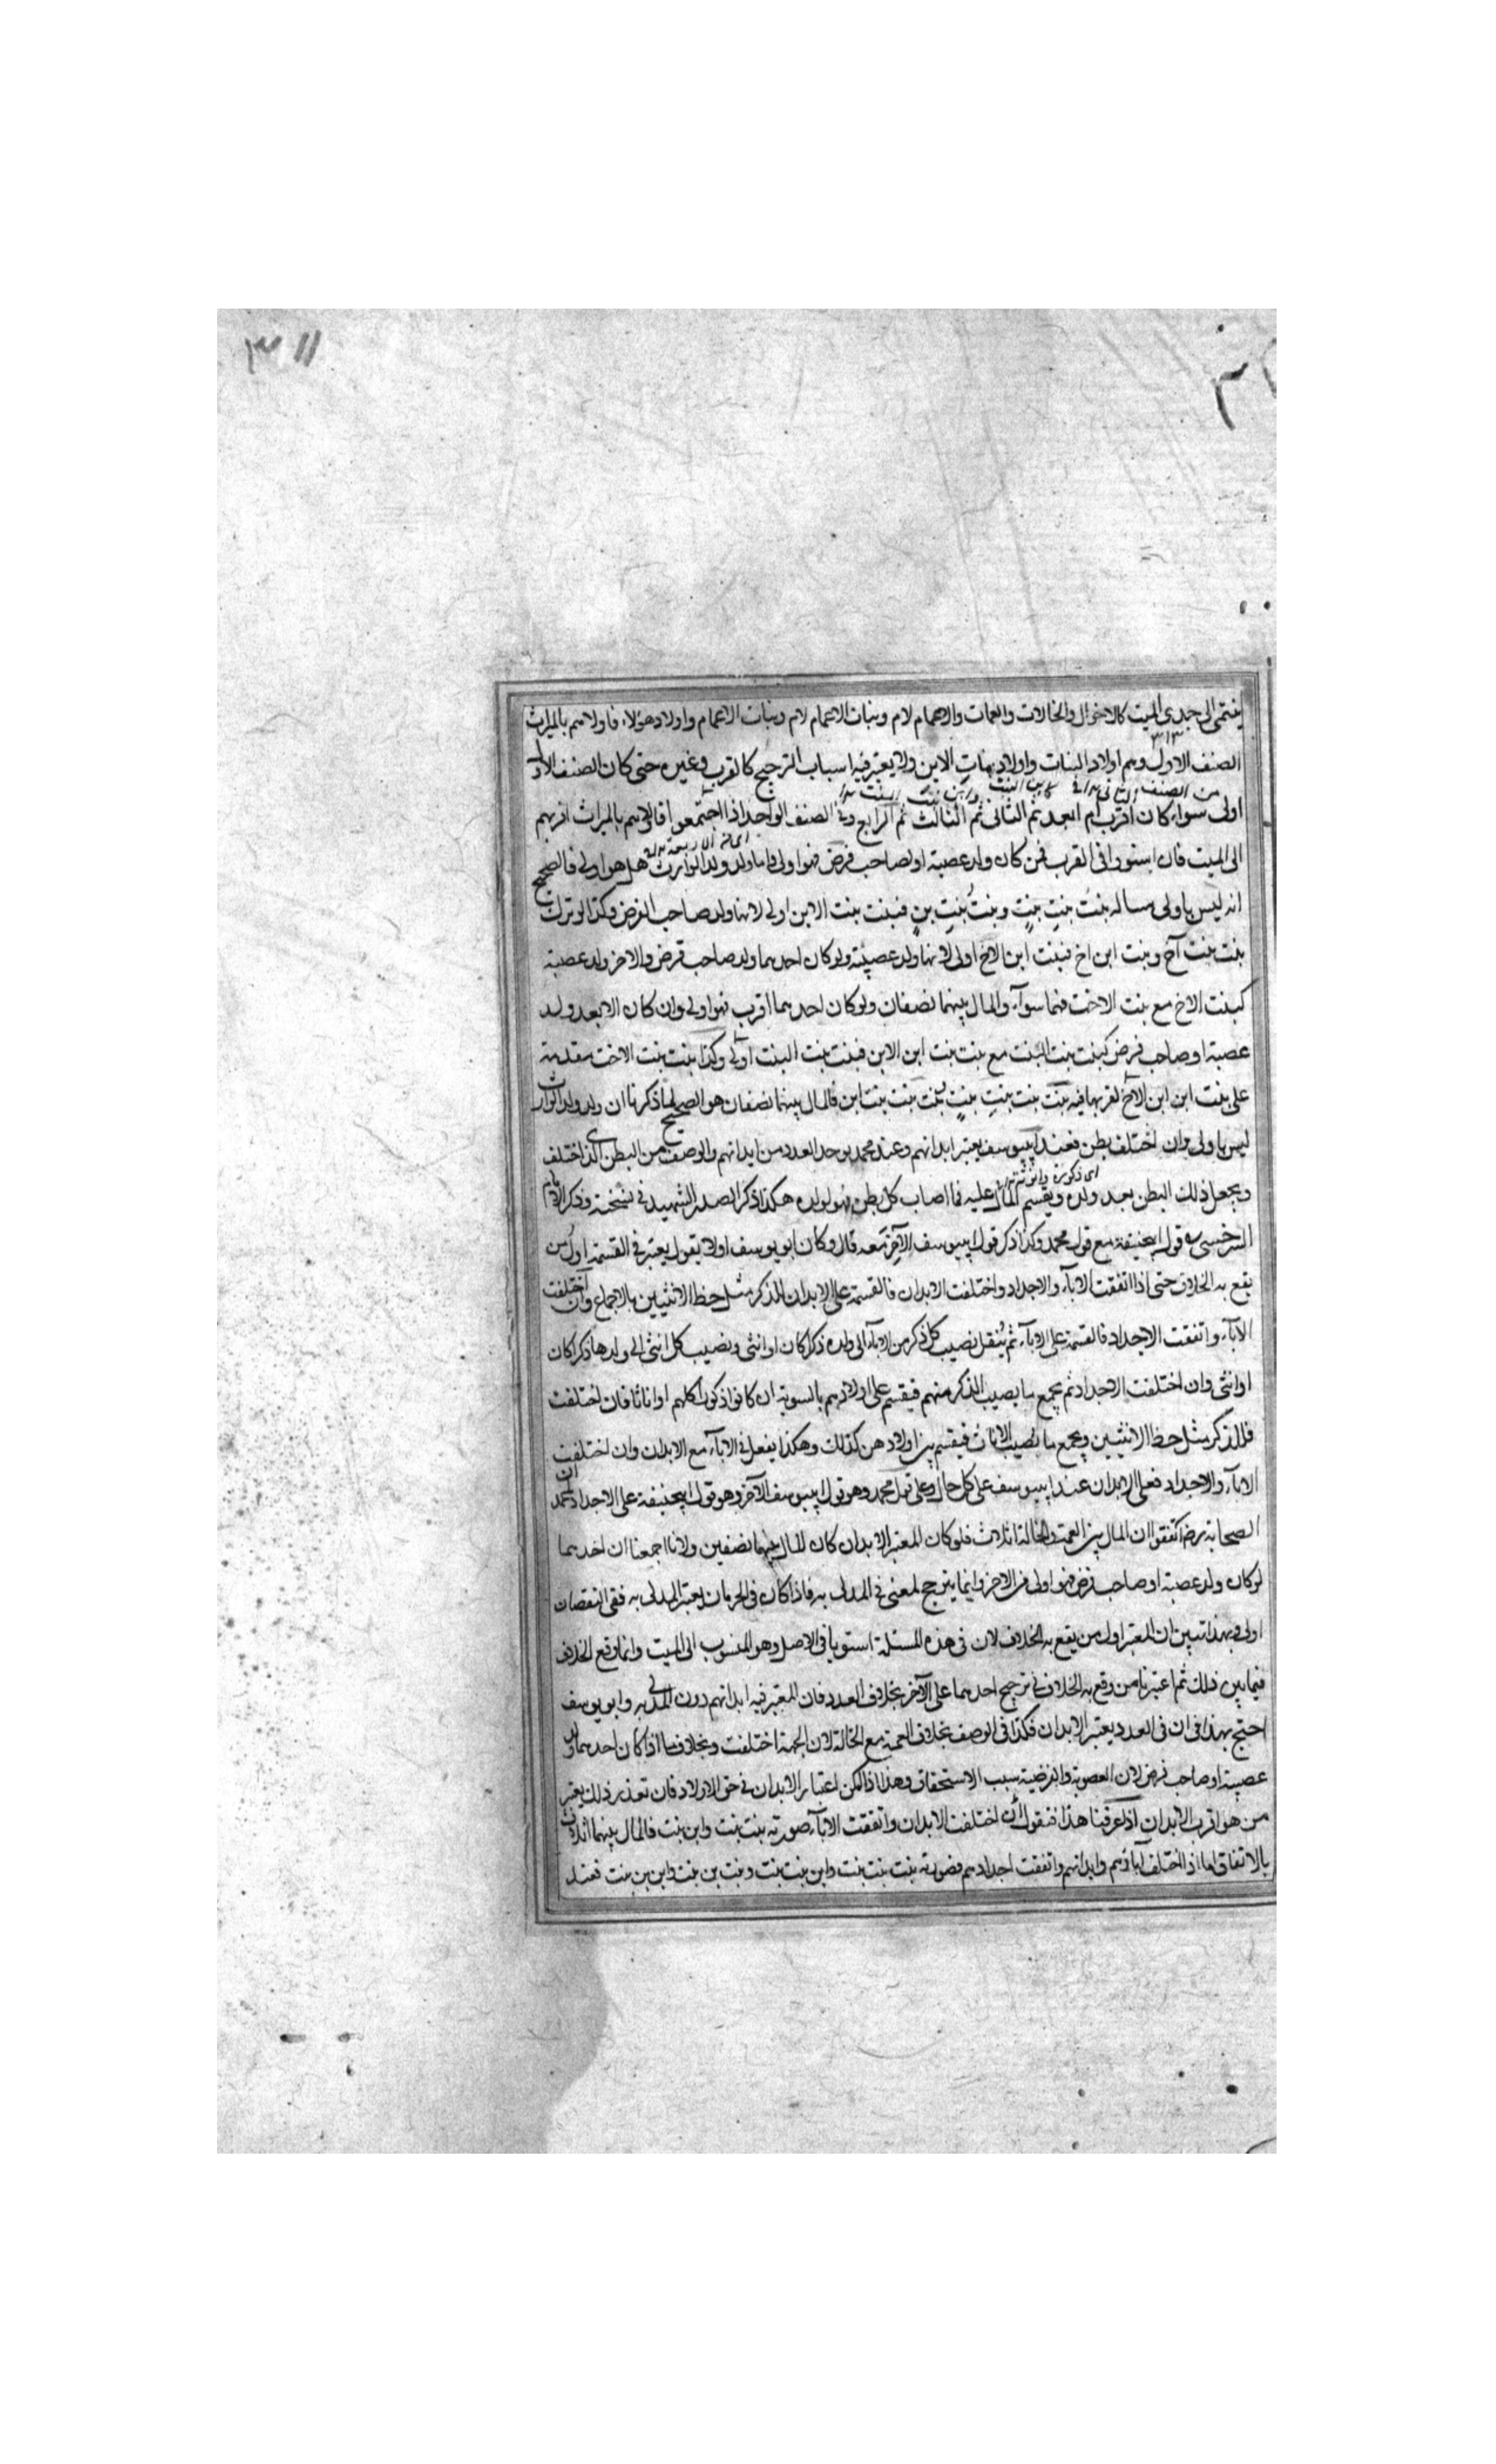 ٣١١
ينتمى الى جدى الميت كالاخوال والخالات والعمات والاعمام لام وبنات الاعمام لام وبنات الاعمام واولاد هؤلاء فاولاهم بالميراث
الصنف الاول وهم اولاد البنات واولاد بنات الابن ولا يعتبر فيه اسباب الترجيح كالقرب وغيره حتى كان الصنف الاول
من الصنف الثانى كابن البنت وابن بنت البنت
اولى سواء كان اقرب ام ابعد ثم الثانى ثم الثالث ثم الرابع وفى الصنف الواحد اذا اجتمعوا فاولاهم بالميراث اقربهم
الى الميت فان استووا فى القرب فمن كان ولد عصبة او لصاحب فرض فهو اولى فاما ولد ولد الوارث هل هو اولى فالصحيح
انه ليس باولى مساله بنت بنت بنت وبنت بنت بن فبنت بنت الابن اولى لانها ولد صاحب الفرض وكذا لو ترك
بنت بنت آخ وبنت ابن اخ فبنت ابن الاخ اولى لانها ولد عصبته ولو كان احدهما ولد صاحب فرض والاخر ولد عصبة
كبنت الاخ مع بنت الاخت فهما سوآء والمال بينهما نصفان ولو كان احدهما اقرب فهو اولى وان كان الابعد ولد
عصبة او صاحب فرض كبنت بنت البنت مع بنت بنت ابن الابن فبنت بنت البنت اولى وكذا بنت بنت الاخت مقدمة
على بنت ابن ابن الاخ لقربها فيه بنت بنت بنت بنت بنت بنت بنت ابن فالمال بينهما نصفان هو الصحيح لما ذكرنا ان ولد ولد الوارث
ليس باولى وان اختلف بطن فعند ابى يوسف يعتبر ابدانهم وعند محمد يوخذ العدد من ابدانهم والوصف من البطن الذى اختلف
اى ذكورة وانوثة
ويجعل ذلك البطن بعد ولده ويقسم المال عليه فما اصاب كل بطن فهو لولده هكذا ذكر الصدر الشهيد فى نسخته وذكر الامام
السرخسى قول ابى حنيفة مع قول محمد وكذا ذكر قول ابى يوسف الآخر معه قال وكان ابو يوسف اولا يقول يعتبر فى القسمة اول من
يقع به الخلاف حتى اذا اتفقت الاباء والاجداد واختلفت الابدان فالقسمة على الابدان للذكر مثل حظ الانثيين بالاجماع وان اختلفت
الاباء واتفقت الاجداد فالقسمة على الاباء ثم ينقل نصيب كل ذكر من الاباء الى ولده ذكرا كان او انثى ونصيب كل انثى الى ولدها ذكرا كان
او انثى وان اختلفت الاجداد ثم يجمع ما يصيب الذكر منهم فيقسم على اولادهم بالسوية ان كانوا ذكورا كلهم او اناثا فان اختلفت
فللذكر مثل حظ الانثيين ويجمع ما يصيب الاناث فيقسم بين اولادهن كذلك وهكذا يفعل فى الاباء مع الابدان وان اختلفت
الاباء والاجداد فعلى الابدان عند ابى يوسف على كل حال وعلى قول محمد وهو قول ابى يوسف الآخر وهو قول ابى حنيفة على الاجداد لمحمد ان
الصحابة رض اتفقوا ان المال بين العمة والخالة اثلاث فلو كان المعتبر الابدان كان المال بينهما نصفين ولانا اجمعنا ان احدهما
لو كان ولد عصبة او صاحب فرض فهو اولى من الاخر وانما يترجح لمعنى فى المدلى به فاذا كان فى الحرمان يعتبر المدلى به ففى النقصان
اولى وبهذا تبين ان المعتبر اول من يقع به الخلاف لان فى هذه المسئلة استويا فى الاصل وهو المنسوب الى الميت وانما وقع الخلاف
فيما بين ذلك ثم اعتبرنا من وقع به الخلاف فى ترجيح احدهما على الآخر بخلاف العدد فان المعتبر فيه ابدانهم دون المدلى به وابو يوسف
احتج بهذا فى ان فى العدد يعتبر الابدان فكذا فى الوصف بخلاف العمة مع الخالة لان الجهة اختلفت وبخلاف ما اذا كان احدهما ولد
عصبة او صاحب فرض لان العصوبة والفرضية سبب الاستحقاق وهذا اذا امكن اعتبار الابدان فى حق الاولاد فان تعذر ذلك يعتبر
من هو اقرب الابدان اذا عرفنا هذا فنقول ان اختلفت الابدان واتفقت الاباء صورته بنت بنت وابن بنت فالمال بينهما اثلاثا
بالاتفاق اما اذا اختلف آباؤهم وابدانهم واتفقت اجدادهم فصورته بنت بنت بنت وابن بنت بنت وبنت بن بنت وابن بن بنت فعند